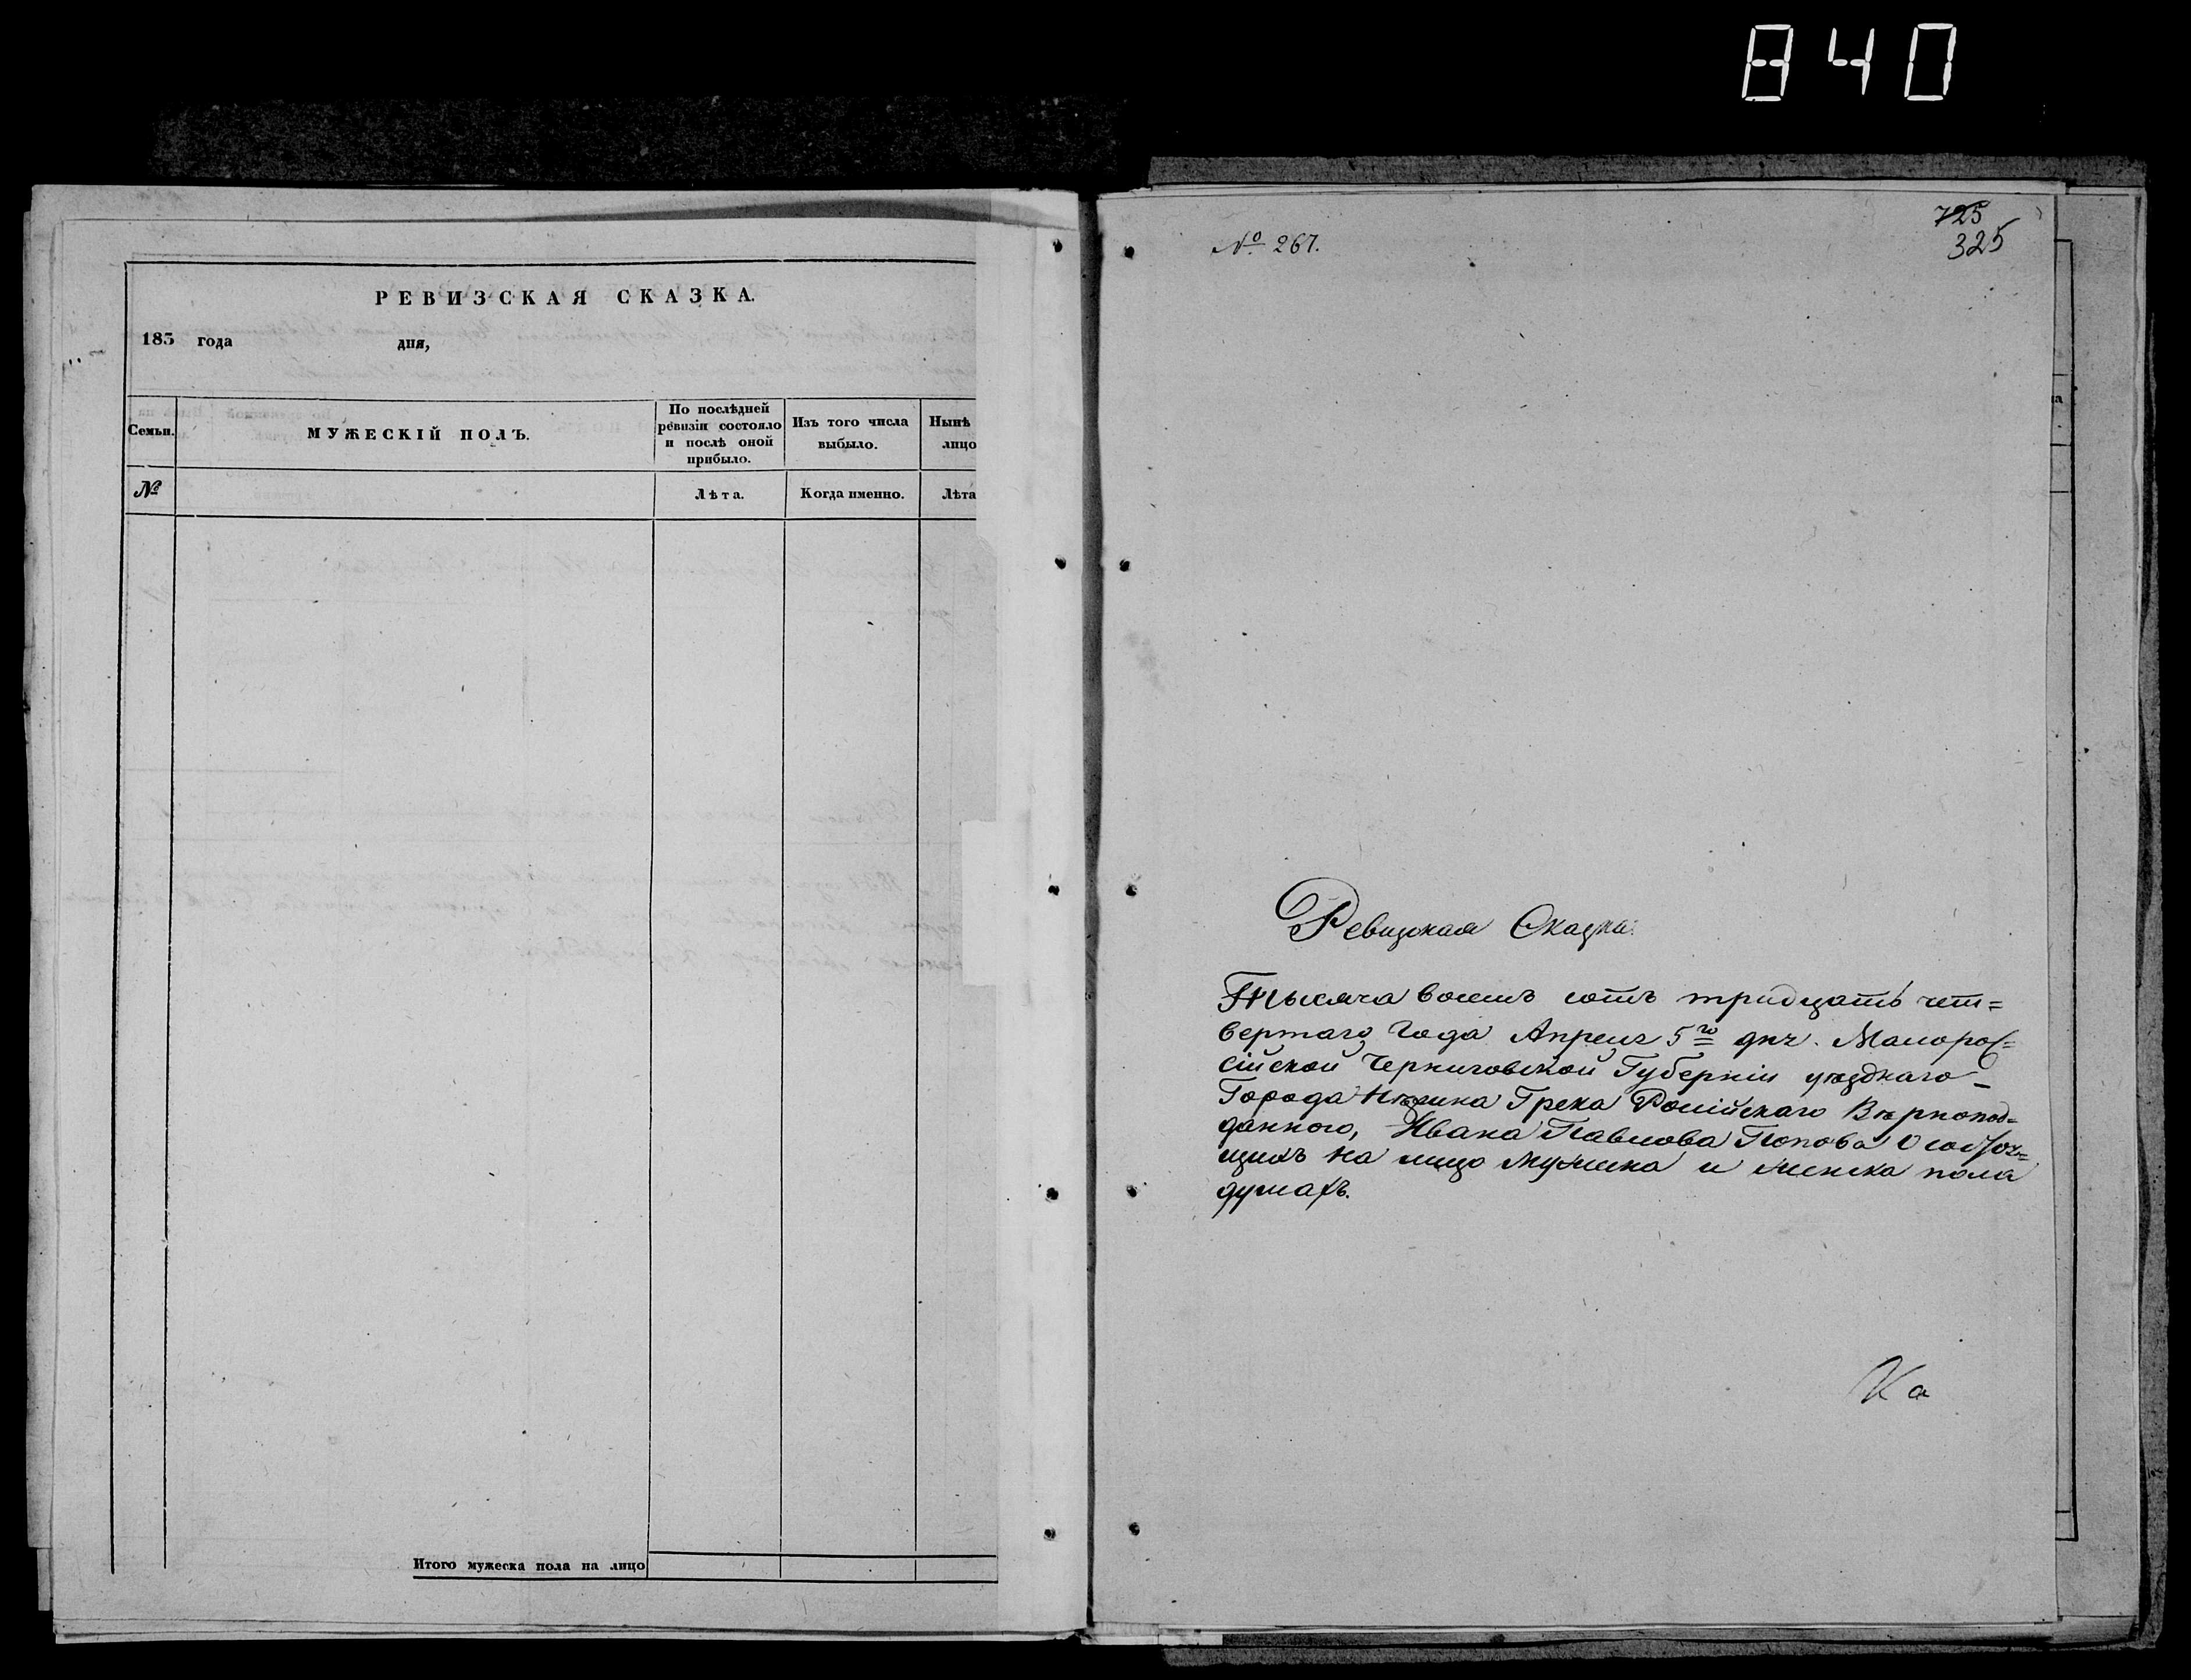 840
РЕВИЗСКАЯ СКАЗКА.
183 года дня,
Семьи.
МУЖЕСКІЙ ПОЛЪ.
По послѣдней
ревизіи состояло
и послѣ оной
прибыло.
Изъ того числа
выбыло.
Нынѣ
лицо
№
Лѣта.
Когда именно.
Лѣта
Итого мужеска пола на лицо
№ 267.
725
325
Ревизская Сказка.
Тысяча восемь сотъ тридцать чет=
вертаго Года Апреля 5го дня. Малорос=
сійской Черниговской Губерніи уѣзднаго
Города Нѣжина Грека Російскаго Вѣрнопод=
данного, Ивана Павлова Попова О состоя=
щихъ на лицо мужеска и женска пола
душахъ.
Ка